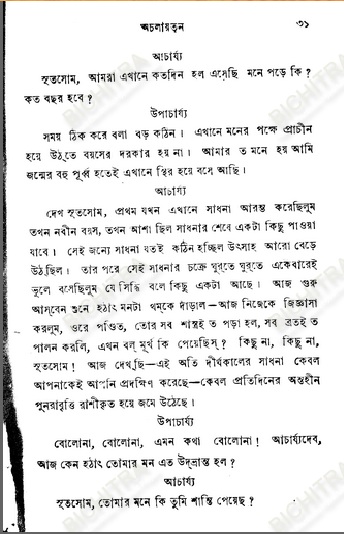 অচলায়তন
৩১
আচার্য্য
সূতসোম, আমরা এখানে কতদিন হল এসেছি মনে পড়ে কি?
কত বছর হবে?
উপাচার্য্য
সময় ঠিক করে বলা বড় কঠিন। এখানে মনের পক্ষে প্রাচীন
হয়ে উঠ্‌তে বয়সের দরকার হয় না। আমার ত মনে হয় আমি
জন্মের বহু পূর্ব্ব হতেই এখানে স্থির হয়ে বসে আছি।
আচার্য্য
দেখ সূতসোম, প্রথম যখন এখানে সাধনা আরম্ভ করেছিলুম
তখন নবীন বয়স, তখন আশা ছিল সাধনার শেষে একটা কিছু পাওয়া
যাবে। সেই জন্যে সাধনা যতই কঠিন হচ্ছিল উৎসাহ আরো বেড়ে
উঠ্‌ছিল। তার পরে সেই সাধনার চক্রে ঘুর্‌তে ঘুর্‌তে একেবারেই
ভুলে বসেছিলুম যে সিদ্ধি বলে কিছু একটা আছে। আজ গুরু
আস্‌বেন শুনে হঠাৎ মনটা থম্‌কে দাঁড়াল—আজ নিজেকে জিজ্ঞাসা
করলুম, ওরে পণ্ডিত, তোর সব শাস্ত্রই ত পড়া হল, সব ব্রতই ত
পালন করলি, এখন বল্ মূর্খ কি পেয়েছিস্? কিছু না, কিছু না,
সূতসোম! আজ দেখ্‌ছি—এই অতি দীর্ঘকালের সাধনা কেবল
আপনাকেই আপনি প্রদক্ষিণ করেছে—কেবল প্রতিদিনের অন্তহীন
পুনরাবৃত্তি রাশীকৃত হয়ে জমে উঠেছে।
উপাচার্য্য
বোলোনা, বোলোনা, এমন কথা বোলোনা! আচার্য্যদেব,
আজ কেন হঠাৎ তোমার মন এত উদ্‌ভ্রান্ত হল?
আচার্য্য
সূতসোম, তোমার মনে কি তুমি শান্তি পেয়েছ?
BICHITRA